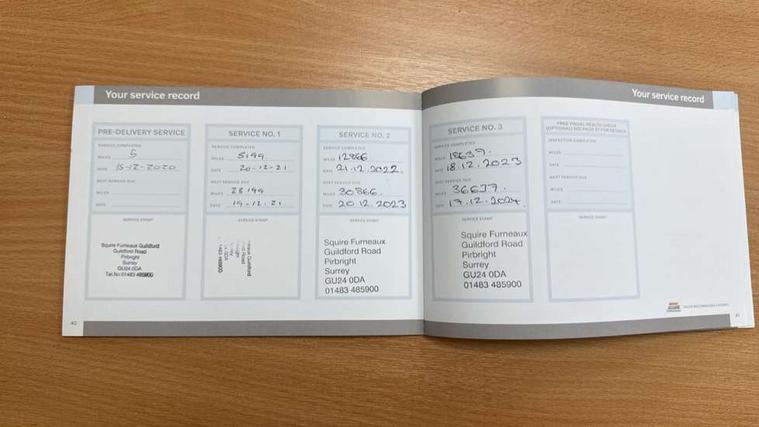 Your service record
PRE-DELIVERY SERVICE
SERVICE COMPLETED
MILES 5
DATE 15-12-2020
NEXT SERVICE DUE
MILES
DATE
SERVICE STAMP
Squire Furneaux Guildford
Guildford Road
Pirbright
Surrey
GU24 0DA
Tel.No 01483 485900
40
SERVICE NO. 1
SERVICE COMPLETED
MILES 5199
DATE 20-12-21
NEXT SERVICE DUE
MILES 23199
DATE 19-12.21
SERVICE STAMP
Guildford
Road
0DA
483 485900
SERVICE NO. 2
SERVICE COMPLETED
MILES 12866
DATE 21.12.2022.
NEXT SERVICE DUE
MILES 30866.
DATE 20 12.2023
SERVICE STAMP
Squire Furneaux
Guildford Road
Pirbright
Surrey
GU24 0DA
01483 485900
Your service record
SERVICE NO. 3
SERVICE COMPLETED
MILES 18637.
DATE 18.12.2023
NEXT SERVICE DUE
MILES 36637.
DATE 17.12.2024.
SERVICE STAMP
Squire Furneaux
Guildford Road
Pirbright
Surrey
GU24 0DA
01483 485900
FREE VISUAL HEALTH CHECK
(OPTIONAL) SEE PAGE 37 FOR DETAILS
INSPECTION COMPLETED
MILES
DATE
NEXT SERVICE DUE
MILES
DATE
SERVICE STAMP
41